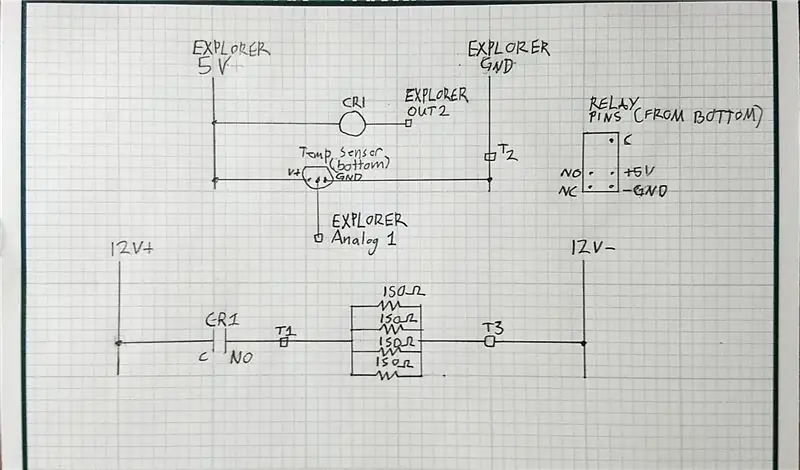 EXPLORER
5V
EXPLORER
GND
CR1
EXPLORER
OUT2
RELAY
PINS (FROM BOTTOM)
C
T2
Temp Sensor
(bottom)
V+
GND
NO
+5V
NC
-GND
EXPLORER
Analog 1
12V+
12V-
150Ω
CR1
T1
150Ω
T3
150Ω
C
NO
150Ω